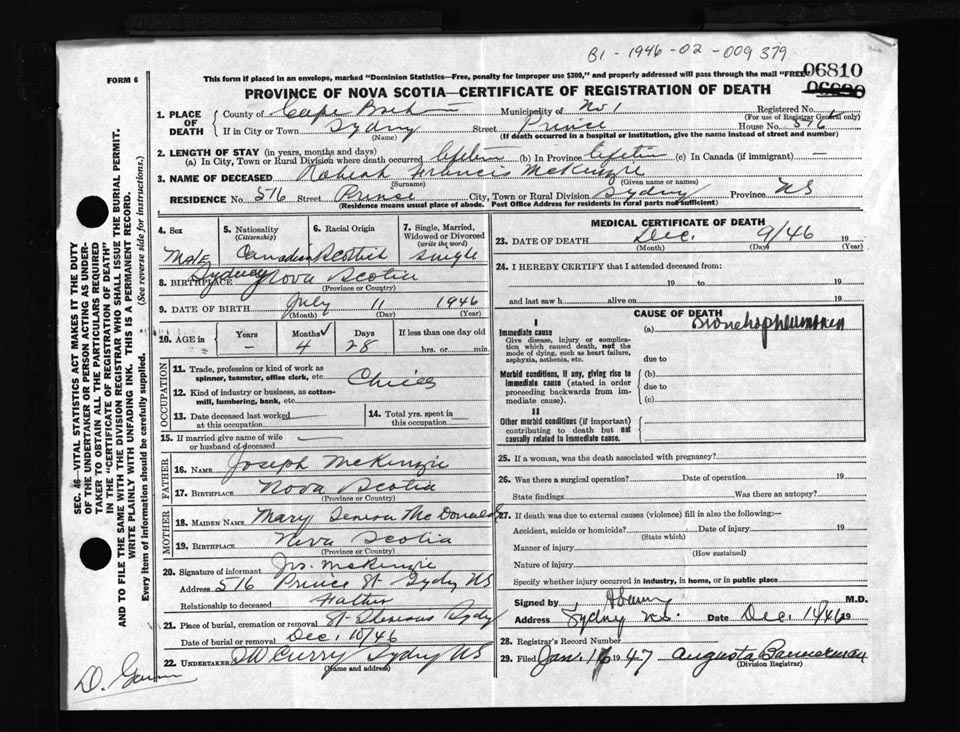 B1 - 1946 - 02 - 009379
FORM 6
This form if placed in an envelope, marked "Dominion Statistics—Free, penalty for improper use $300," and properly addressed will pass through the mail "FREE"
06810
PROVINCE OF NOVA SCOTIA—CERTIFICATE OF REGISTRATION OF DEATH
1. PLACE OF DEATH
County of Cape Breton Municipality of No 1 Registered No.
(For use of Registrar General only)
If in City or Town Sydney Street Prince House No. 576
(Name) (If death occurred in a hospital or institution, give the name instead of street and number)
2. LENGTH OF STAY (in years, months and days)
(a) In City, Town or Rural Division where death occurred Lifetime (b) In Province Lifetime (c) In Canada (if immigrant) —
3. NAME OF DECEASED Robert Francis McKenzie
(Surname) (Given name or names)
RESIDENCE No. 576 Street Prince City, Town or Rural Division Sydney Province NS
(Residence means usual place of abode. Post Office Address for residents in rural parts not sufficient)
4. Sex 5. Nationality (Citizenship) 6. Racial Origin 7. Single, Married, Widowed or Divorced (write the word)
Male Canadian Scottish Single
8. BIRTHPLACE Sydney Nova Scotia
(Province or Country)
9. DATE OF BIRTH July 11 1946
(Month) (Day) (Year)
10. AGE in Years Months Days If less than one day old
4 28 hrs. or min.
OCCUPATION
11. Trade, profession or kind of work as spinner, teamster, office clerk, etc. Child
12. Kind of industry or business, as cotton-mill, lumbering, bank, etc.
13. Date deceased last worked at this occupation
14. Total yrs. spent in this occupation
15. If married give name of wife or husband of deceased —
FATHER
16. NAME Joseph McKenzie
17. BIRTHPLACE Nova Scotia
(Province or Country)
MOTHER
18. MAIDEN NAME Mary Teresa McDonald
19. BIRTHPLACE Nova Scotia
(Province or Country)
20. Signature of informant Jos. McKenzie
Address 576 Prince St Sydney NS
Relationship to deceased Father
21. Place of burial, cremation or removal Sydney
Date of burial or removal Dec. 10/46
22. UNDERTAKER Curry Sydney NS
(Name and address)
MEDICAL CERTIFICATE OF DEATH
23. DATE OF DEATH Dec. 9/46 19
(Month) (Day) (Year)
24. I HEREBY CERTIFY that I attended deceased from:
19 to 19
and last saw h alive on 19
CAUSE OF DEATH
I
Immediate cause (a) Bronchopneumonia
Give disease, injury or complication which caused death, not the mode of dying, such as heart failure, asphyxia, asthenia, etc.
due to
Morbid conditions, if any, giving rise to immediate cause (stated in order proceeding backwards from immediate cause).
(b)
due to
(c)
II
Other morbid conditions (if important) contributing to death but not causally related to immediate cause.
25. If a woman, was the death associated with pregnancy?
26. Was there a surgical operation? Date of operation 19
State findings Was there an autopsy?
27. If death was due to external causes (violence) fill in also the following:—
Accident, suicide or homicide? Date of injury 19
(State which)
Manner of injury
(How sustained)
Nature of injury
Specify whether injury occurred in industry, in home, or in public place
Signed by M.D.
Address Sydney N.S. Date Dec. 14/46 19
28. Registrar's Record Number
29. Filed Jan. 16 1947 Augusta Bannerman
(Division Registrar)
SEC. 48—VITAL STATISTICS ACT MAKES IT THE DUTY
OF THE UNDERTAKER OR PERSON ACTING AS UNDER-
TAKER TO OBTAIN ALL THE PARTICULARS REQUIRED
IN THE "CERTIFICATE OF REGISTRATION OF DEATH"
AND TO FILE THE SAME WITH THE DIVISION REGISTRAR WHO SHALL ISSUE THE BURIAL PERMIT.
WRITE PLAINLY WITH UNFADING INK. THIS IS A PERMANENT RECORD.
Every item of information should be carefully supplied. (See reverse side for instructions.)